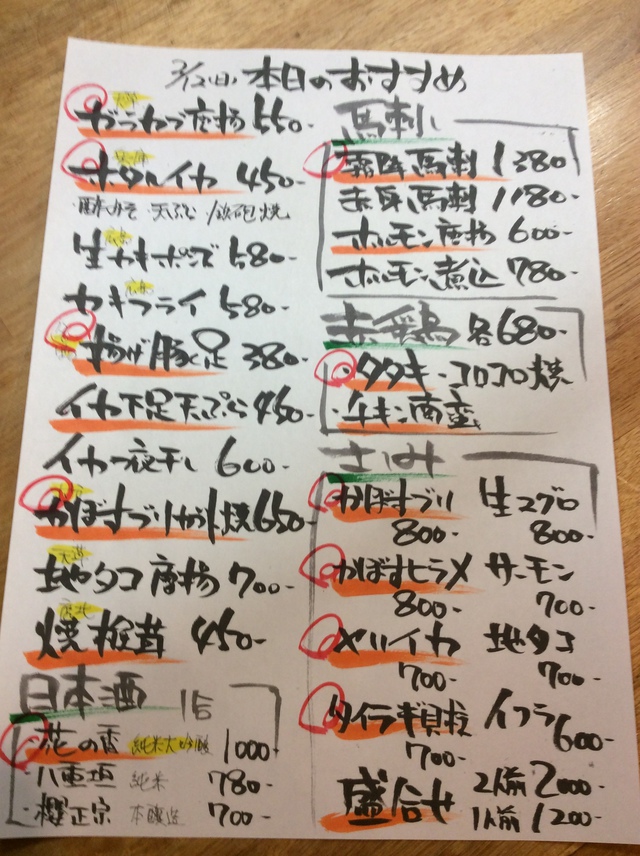 3/12(日) 本日のおすすめ
ガラカブ唐揚 550-
ホタルイカ 450-
・酢みそ ・天ぷら ・鉄砲焼
生カキポンズ 580-
カキフライ 580-
揚げ豚足 380-
イカ下足天ぷら 450-
イカ一夜干し 600-
かぼすブリカマ焼 650-
地タコ唐揚 700-
焼椎茸 450-
日本酒 1合
花の香 純米大吟醸 1000
八重垣 純米 780-
・櫻正宗 本醸造 700-
馬刺し
霜降馬刺 1380
赤身馬刺 1180-
ホルモン唐揚 600-
ホルモン煮込 780-
赤鶏 各680-
・タタキ ・コロコロ焼
・チキン南蛮
さしみ
かぼすブリ 800-
生マグロ 800-
かぼすヒラメ 800-
サーモン 700-
ヤリイカ 700-
地タコ 700-
タイラギ貝柱 700-
イクラ 600-
盛合せ 2人前 2000-
1人前 1200-